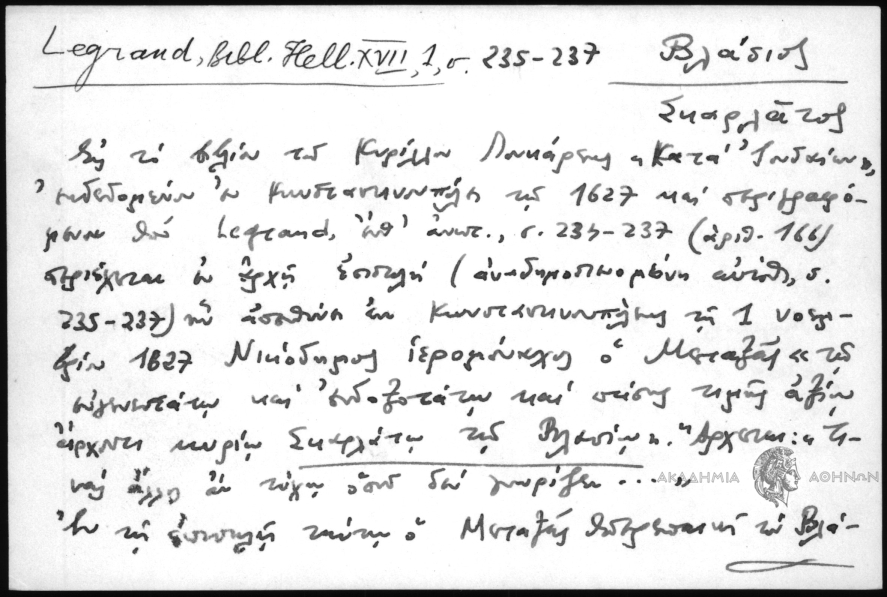 Legrand, Bibl. Hell. XVII, 1, σ. 235-237 Βλάσιος
Σκαρλάτος
Εἰς τὸ βιβλίον τοῦ Κυρίλλου Λουκάρεως «Κατὰ Ἰουδαίων»,
ἐκδεδομένον ἐν Κωνσταντινουπόλει τῷ 1627 καὶ περιγραφό-
μενον ὑπὸ Legrand, ἔνθ' ἀνωτ., σ. 234-237 (ἀριθ. 166)
περιέχεται ἐν ἀρχῇ ἐπιστολὴ (ἀναδημοσιευομένη αὐτόθι, σ.
235-237) ἣν ἀπευθύνει ἐκ Κωνσταντινουπόλεως τῇ 1 νοεμ-
βρίου 1627 Νικόδημος ἱερομόναχος ὁ Μεταξᾶς «τῷ
εὐγενεστάτῳ καὶ ἐνδοξοτάτῳ καὶ πάσης τιμῆς ἀξίῳ
ἄρχοντι κυρίῳ Σκαρλάτῳ τῷ Βλασίῳ». Ἄρχεται: «Τι-
νὰς ἄλλος ἂν τύχῃ ὁποῦ δὲν γνωρίζει ... »
ΑΚΑΔΗΜΙΑ ΑΘΗΝΩΝ
Ἐν τῇ ἐπιστολῇ ταύτῃ ὁ Μεταξᾶς τὸν Βλά-